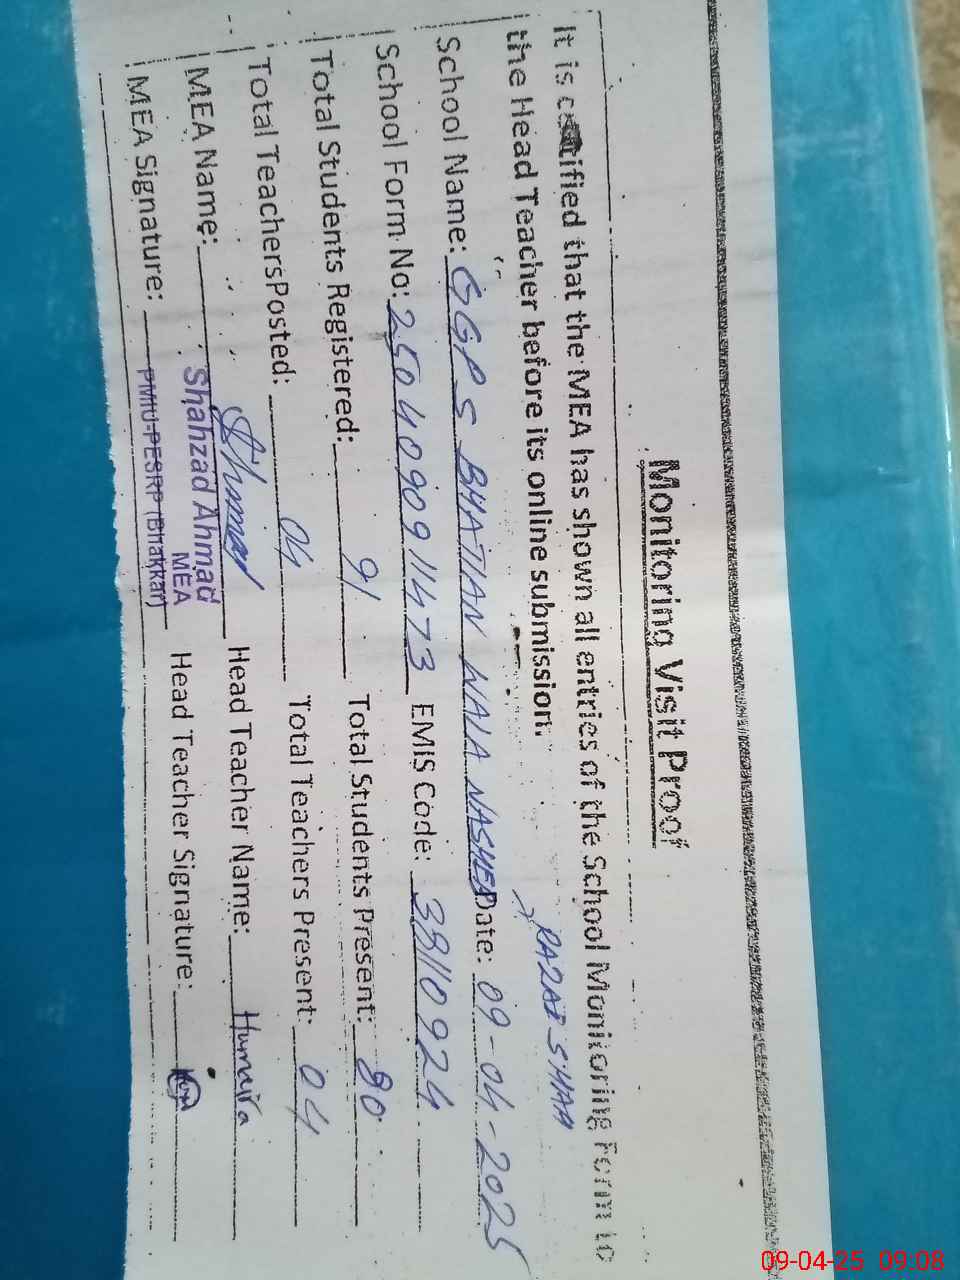 Monitoring Visit Proof
It is certified that the MEA has shown all entries of the School Monitoring Form to
the Head Teacher before its online submission.
RAZAI SHAH
School Name: GGPS BHATIAN WALA NASHEB Date: 09-04-2025
School Form No: 25040909 11473 EMIS Code: 38110924
Total Students Registered: 91 Total Students Present: 80
Total TeachersPosted: 04 Total Teachers Present: 04
MEA Name: Shahzad Ahmad Head Teacher Name: Humira
MEA
MEA Signature: PMIU-PESRP (Bhakkar) Head Teacher Signature:
09-04-25 09:08